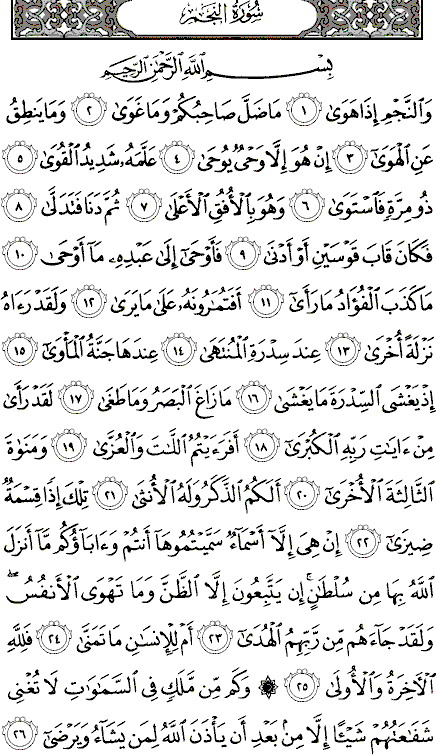 سُورَةُ النَّجْمِ
بِسْمِ اللَّهِ الرَّحْمَٰنِ الرَّحِيمِ
وَالنَّجْمِ إِذَا هَوَىٰ ١ مَا ضَلَّ صَاحِبُكُمْ وَمَا غَوَىٰ ٢ وَمَا يَنطِقُ
عَنِ الْهَوَىٰ ٣ إِنْ هُوَ إِلَّا وَحْيٌ يُوحَىٰ ٤ عَلَّمَهُۥ شَدِيدُ الْقُوَىٰ ٥
ذُو مِرَّةٍ فَاسْتَوَىٰ ٦ وَهُوَ بِالْأُفُقِ الْأَعْلَىٰ ٧ ثُمَّ دَنَا فَتَدَلَّىٰ ٨
فَكَانَ قَابَ قَوْسَيْنِ أَوْ أَدْنَىٰ ٩ فَأَوْحَىٰ إِلَىٰ عَبْدِهِۦ مَا أَوْحَىٰ ١٠
مَا كَذَبَ الْفُؤَادُ مَا رَأَىٰ ١١ أَفَتُمَارُونَهُۥ عَلَىٰ مَا يَرَىٰ ١٢ وَلَقَدْ رَءَاهُ
نَزْلَةً أُخْرَىٰ ١٣ عِندَ سِدْرَةِ الْمُنتَهَىٰ ١٤ عِندَهَا جَنَّةُ الْمَأْوَىٰ ١٥
إِذْ يَغْشَى السِّدْرَةَ مَا يَغْشَىٰ ١٦ مَا زَاغَ الْبَصَرُ وَمَا طَغَىٰ ١٧ لَقَدْ رَأَىٰ
مِنْ ءَايَاتِ رَبِّهِ الْكُبْرَىٰ ١٨ أَفَرَءَيْتُمُ اللَّاتَ وَالْعُزَّىٰ ١٩ وَمَنَوٰةَ
الثَّالِثَةَ الْأُخْرَىٰ ٢٠ أَلَكُمُ الذَّكَرُ وَلَهُ الْأُنثَىٰ ٢١ تِلْكَ إِذًا قِسْمَةٌ
ضِيزَىٰ ٢٢ إِنْ هِيَ إِلَّا أَسْمَاءٌ سَمَّيْتُمُوهَا أَنتُمْ وَءَابَاؤُكُم مَّا أَنزَلَ
اللَّهُ بِهَا مِن سُلْطَٰنٍ ۚ إِن يَتَّبِعُونَ إِلَّا الظَّنَّ وَمَا تَهْوَى الْأَنفُسُ ۖ
وَلَقَدْ جَاءَهُم مِّن رَّبِّهِمُ الْهُدَىٰ ٢٣ أَمْ لِلْإِنسَٰنِ مَا تَمَنَّىٰ ٢٤ فَلِلَّهِ
الْآخِرَةُ وَالْأُولَىٰ ٢٥ ۞ وَكَم مِّن مَّلَكٍ فِي السَّمَٰوَٰتِ لَا تُغْنِي
شَفَٰعَتُهُمْ شَيْئًا إِلَّا مِن بَعْدِ أَن يَأْذَنَ اللَّهُ لِمَن يَشَاءُ وَيَرْضَىٰ ٢٦